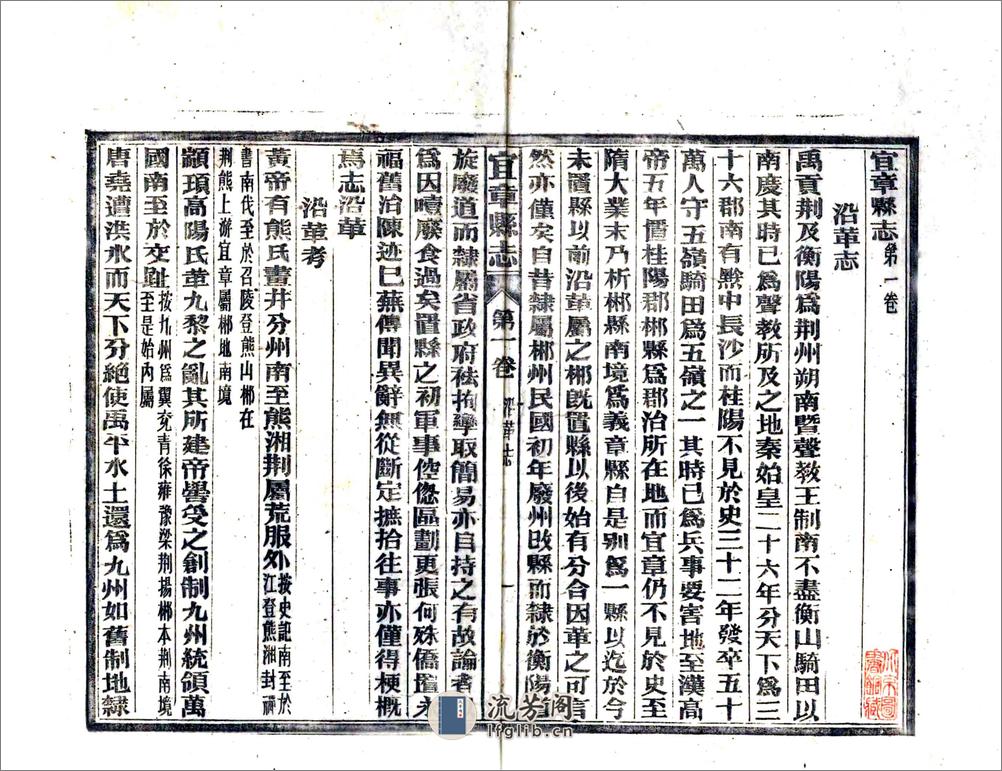 宜章縣志第一卷
沿革志
禹貢荆及衡陽爲荆州朔南暨聲教王制南不盡衡山騎田以
南慶其時已爲聲教所及之地秦始皇二十六年分天下爲三
十六郡南有黔中長沙而桂陽不見於史三十二年發卒五十
萬人守五嶺騎田爲五嶺之一其時已爲兵事要害地至漢高
帝五年置桂陽郡郴縣爲郡治所在地而宜章仍不見於史至
隋大業末乃析郴縣南境爲義章縣自是别爲一縣以迄於今
未置縣以前沿革屬之郴既置縣以後始有分合因革之可言
然亦僅矣自昔隸屬郴州民國初年廢州改縣而隸於衡陽道
宜章縣志
第一卷
沿革志
一
旋廢道而隸屬省政府祛拘攣取簡易亦自持之有故論者
爲因噎廢食過矣置縣之初軍事倥傯區劃更張何殊僑置永
福舊治陳迹已蕪傳聞異辭無從斷定摭拾往事亦僅得梗概
焉志沿革
沿革考
黄帝有熊氏畫井分州南至熊湘荆屬荒服外按史記南至於江登熊湘封禪
書南伐至於召陵登熊山郴在
荆熊上游宜章屬郴地南境
顓頊高陽氏革九黎之亂其所建帝嚳受之創制九州統領萬
國南至於交趾按九州爲冀兗青徐雍豫梁荆揚郴本荆南境至是始內屬
唐堯遭洪水而天下分絶使禹平水土還爲九州如舊制地隸
流芳閣
lfglib.cn